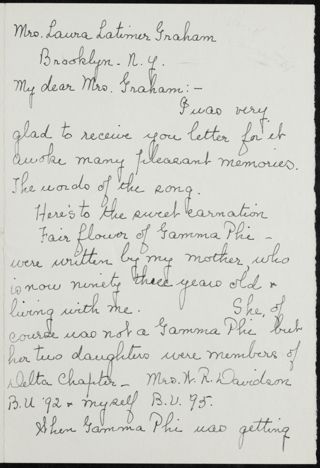 Mrs. Laura Latimer Graham
Brooklyn - N.Y.
My dear Mrs. Graham: -
I was very
glad to receive you letter for it
awoke many pleasant memories.
The words of the song.
Here's to the sweet carnation
Fair flower of Gamma Phi -
were written by my mother who
is now ninety three years old &
living with me. She, of
course was not a Gamma Phi but
her two daughters were members of
Delta Chapter - Mrs. W. R. Davidson
B.U '92 & myself B.U. '95.
When Gamma Phi was getting